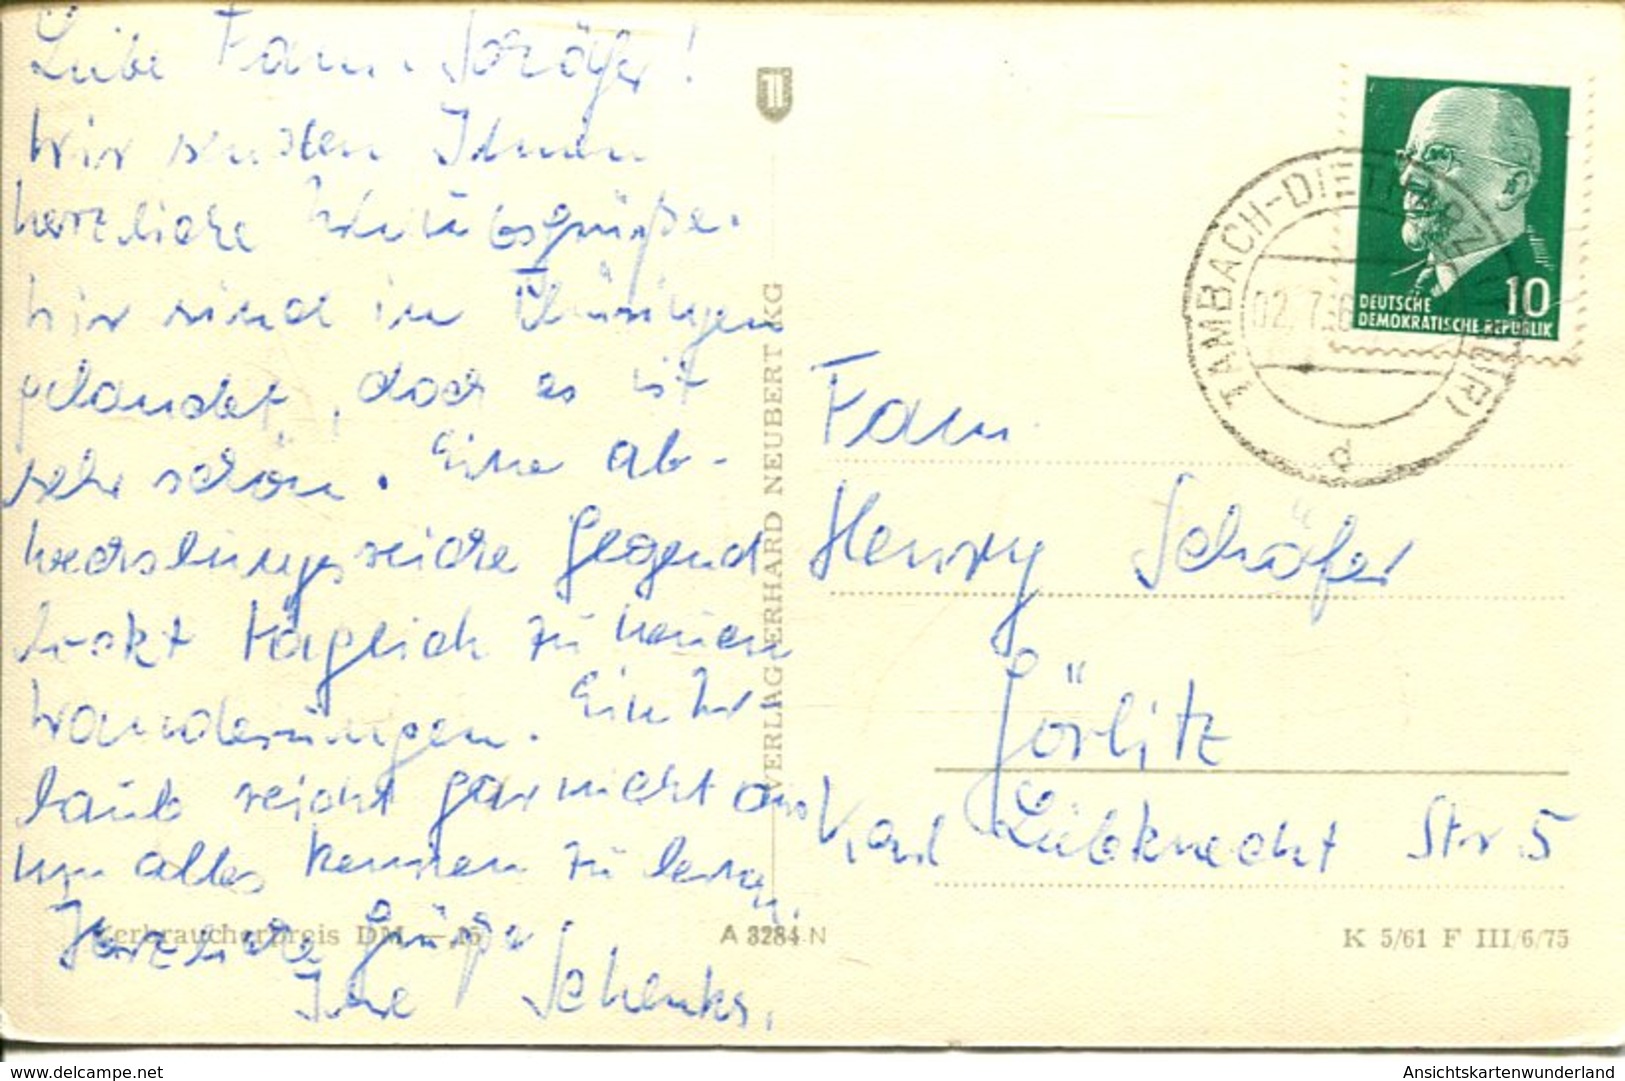 Liebe Fam. Schäfer!
Wir senden Ihnen
herzliche Urlaubsgrüße.
Wir sind in Thüringen
gelandet, doch es ist
sehr schön. Eine ab-
wechslungsreiche Gegend
lockt täglich zu neuen
Wanderungen. Ein Ur-
laub reicht gar nicht aus
um alles kennen zu lernen.
Herzliche Grüße
Ihre Schenks.
Verbraucherpreis DM
A 3284 N
VERLAG GERHARD NEUBERT KG
TAMBACH-DIETHARZ (THÜR)
02. 7. 6
d
10
DEUTSCHE
DEMOKRATISCHE REPUBLIK
Fam.
Henry Schäfer
Görlitz
Karl Liebknecht Str 5
K 5/61 F III/6/75
delcampe.net
Ansichtskartenwunderland